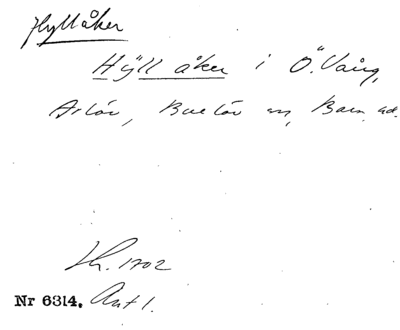 Hyllåker
Hÿll åker i Ö. Vång,
Arlöv, Burlöv sn, Bara hd.
Lh. 1702
Nr 6314. Ant 1.